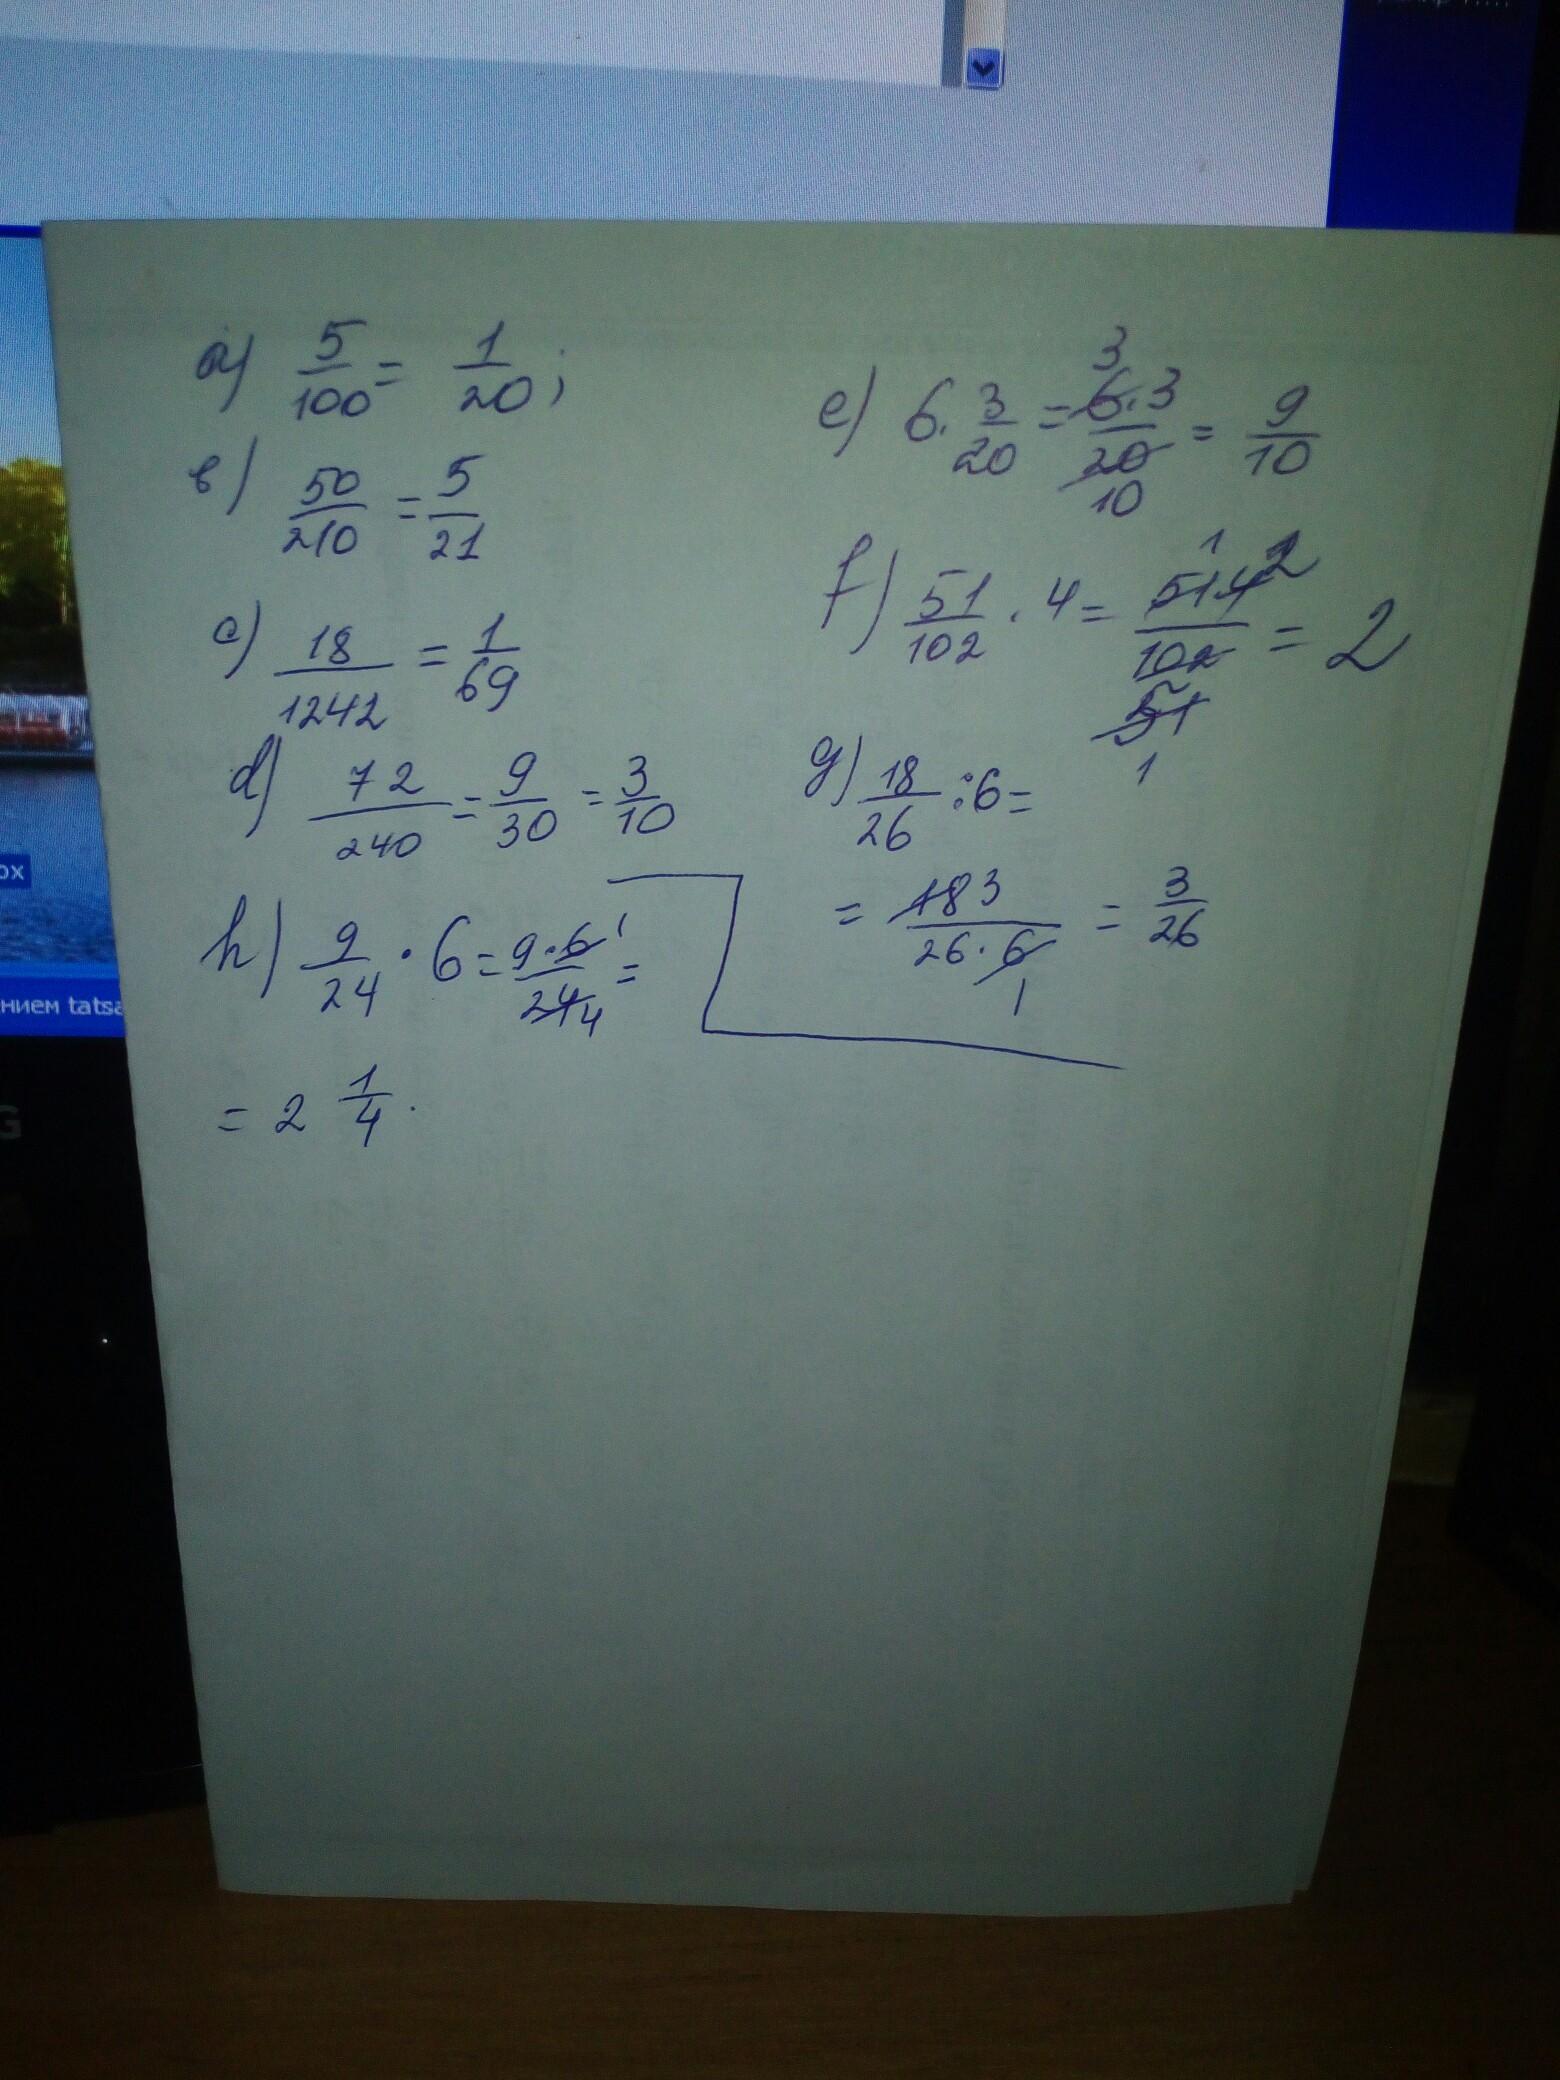 a) 5/100 = 1/20;
в) 50/210 = 5/21
c) 18/1242 = 1/69
d) 72/240 = 9/30 = 3/10
h) 9/24 · 6 = 9·6 1/24 4 =
= 2 1/4.
e) 6 · 3/20 = 3 6·3/20 10 = 9/10
f) 51/102 · 4 = 1 51 4 2/102 51 1 = 2
g) 18/26 : 6 =
= 18 3/26·6 1 = 3/26
нием tatsa
ox
G